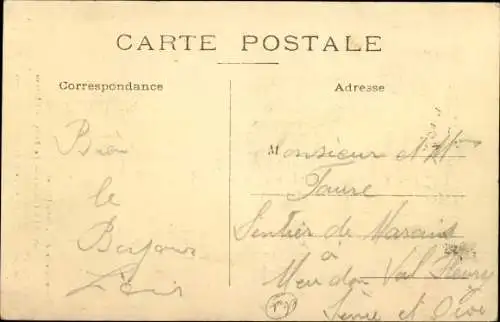 CARTE POSTALE
Correspondance
Adresse
Bien
le
Bonjour
Monsieur et Mme
Faure
Sentier de Marais
à
Meudon Val Fleury
Seine et Oise